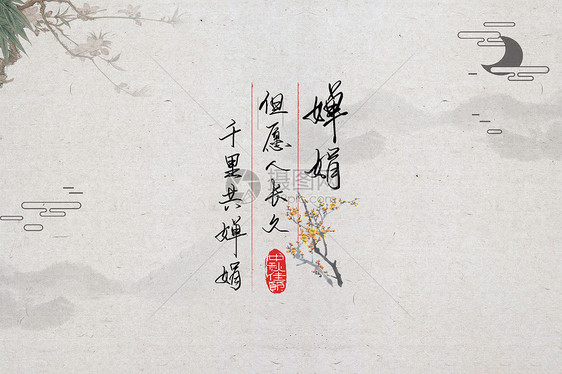 婵娟
但愿人长久
千里共婵娟
中秋佳节
摄图网